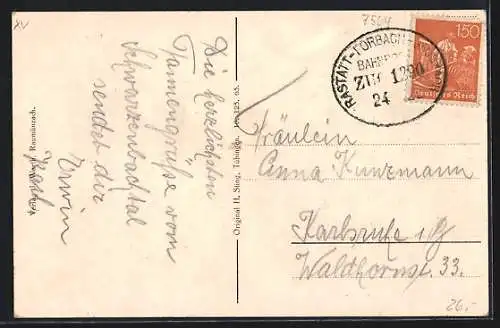 XV
7564
150
Deutsches Reich
RASTATT-FORBACH
BAHNPOST
ZUG 1290
24
Die herzlichsten
Tannengrüße vom
Schwarzenbachtal
sendet dir
Erwin
Raumünzach.
Original H. Sting, Tübingen.
Fräulein
Anna Kunzmann
Karlsruhe i/B
Waldhornst. 33.
26.-